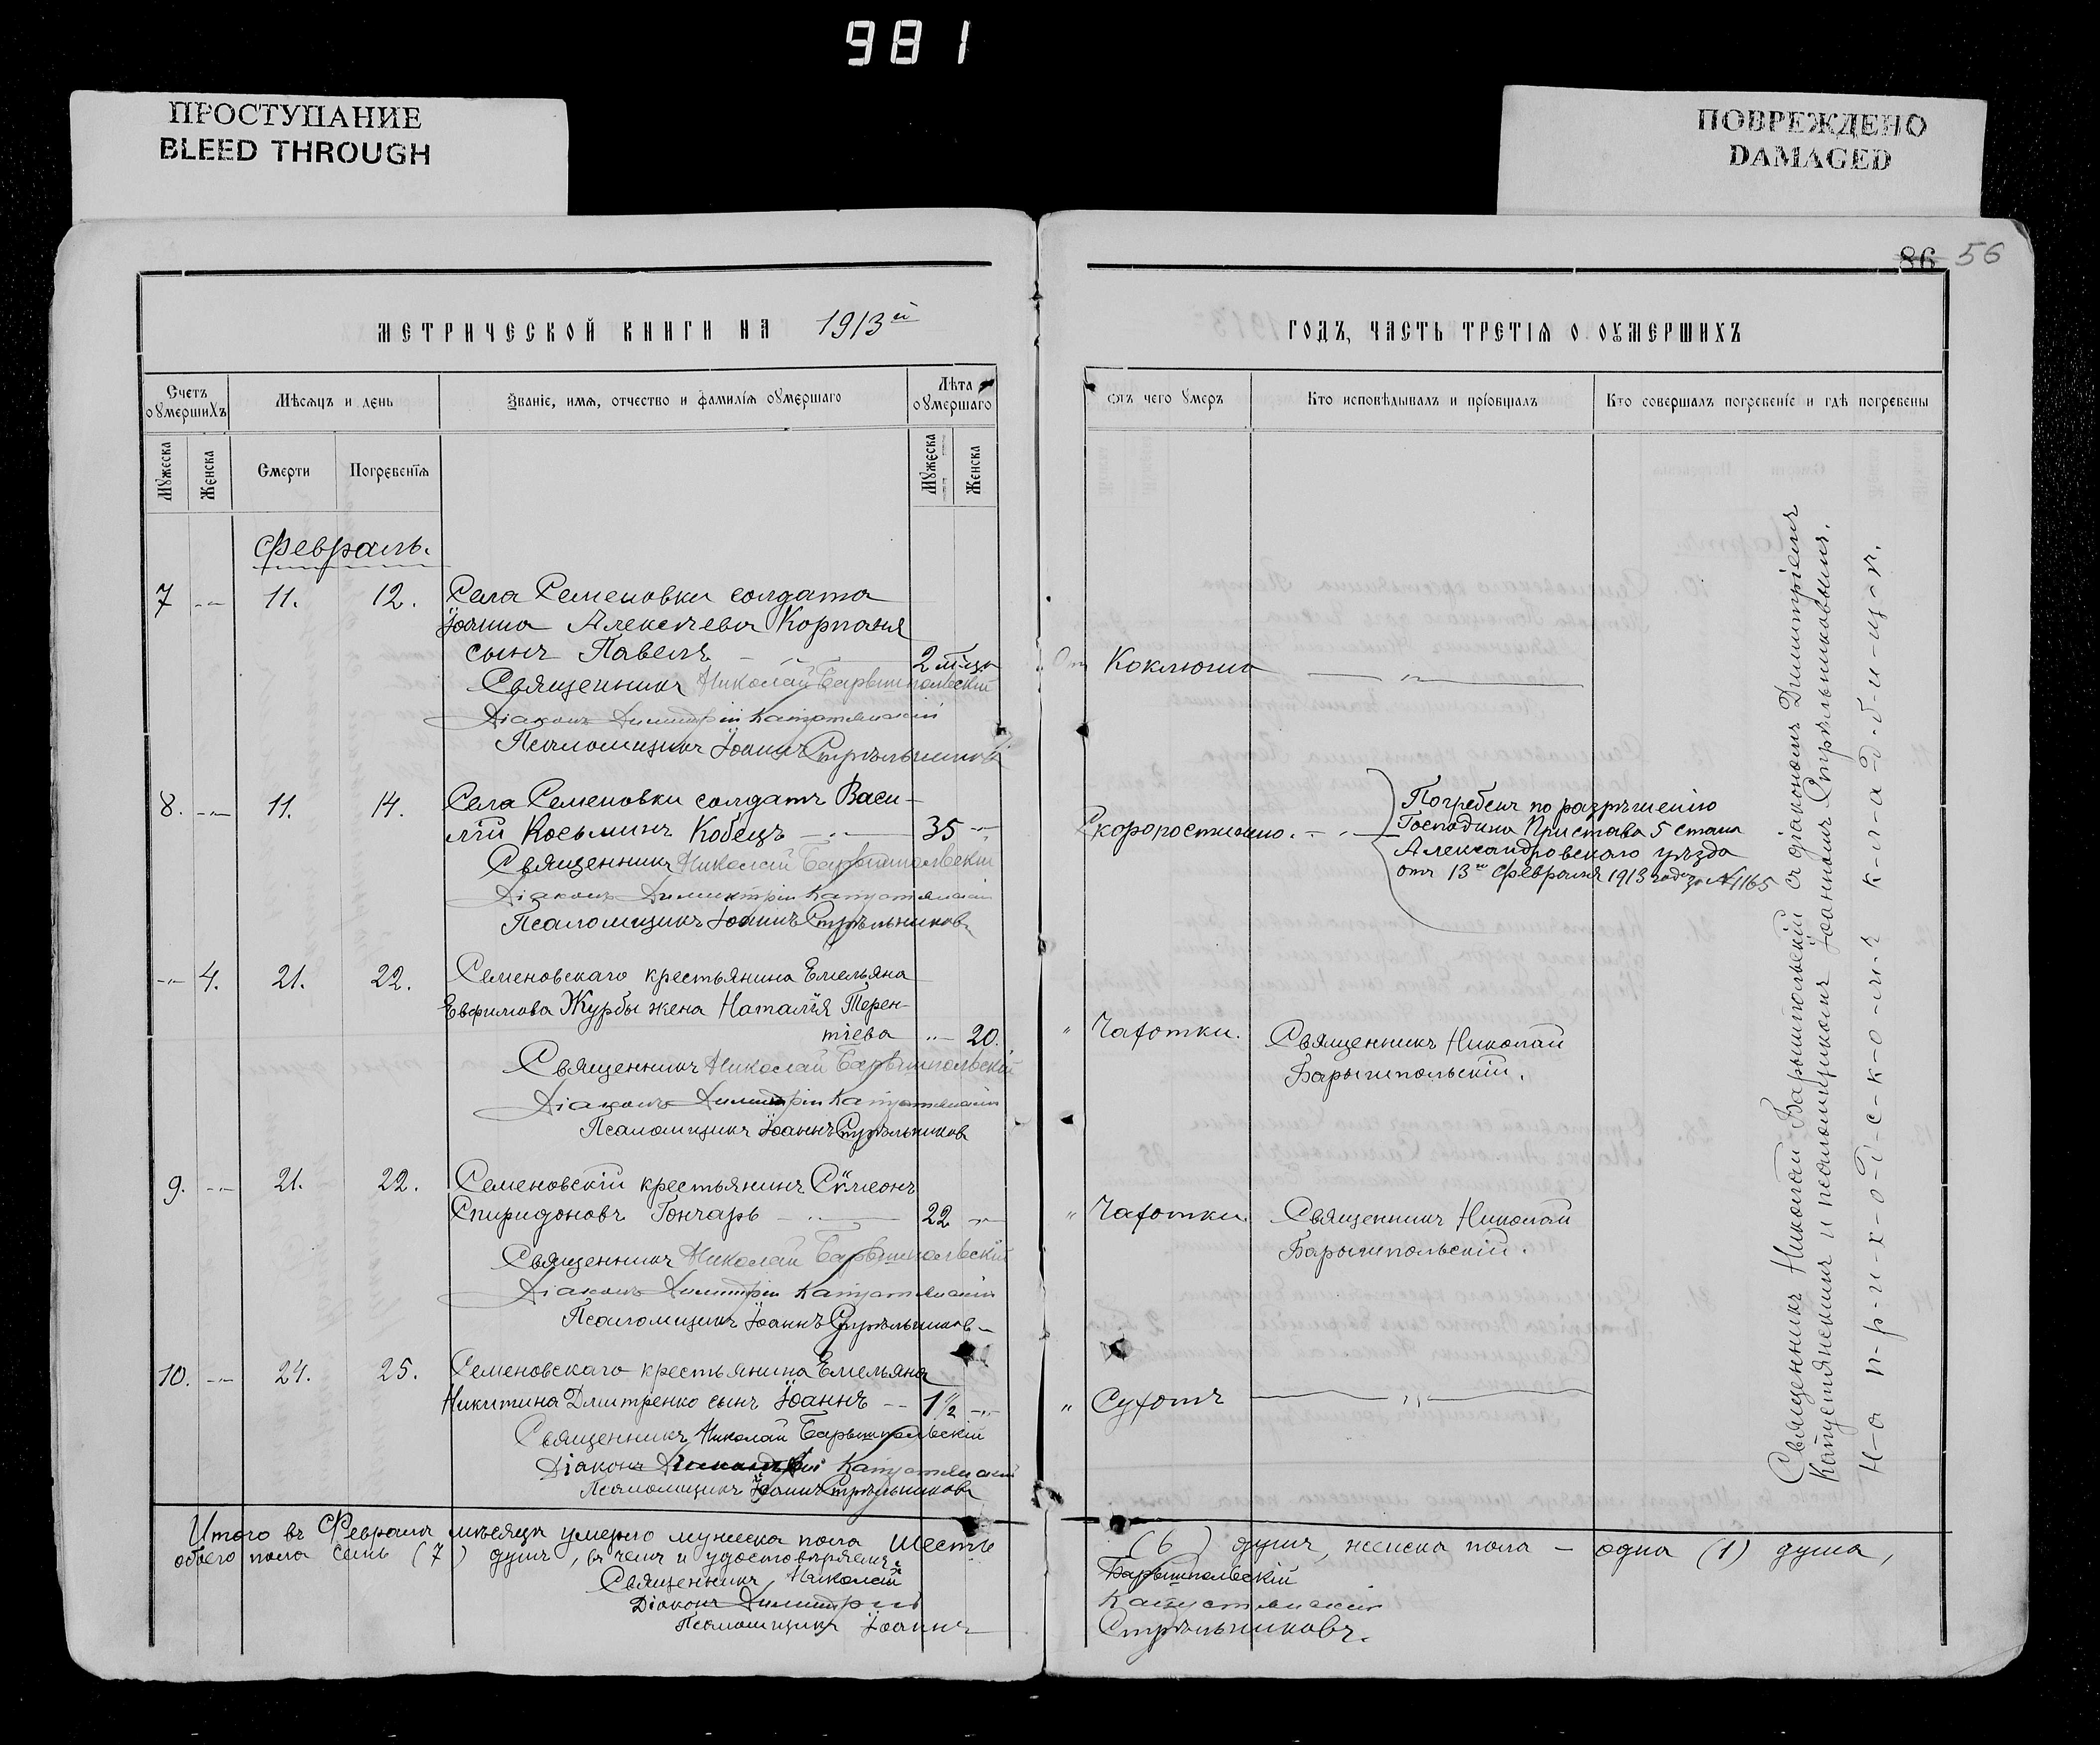 981
ПРОСТУПАНИЕ
BLEED THROUGH
ПОВРЕЖДЕНО
DAMAGED
86 56
МЕТРИЧЕСКОЙ КНИГИ НА 1913й
ГОДЪ, ЧАСТЬ ТРЕТІѦ О ОУМЕРШИХЪ
Счетъ оумершихъ
Мѣсяцъ и день
Званіе, имѧ, отчество и фамиліѧ оумершаго
Лѣта оумершаго
Отъ чего умеръ
Кто исповѣдывалъ и пріобщалъ
Кто совершалъ погребеніе и гдѣ погребены
Мужеска
Женска
Смерти
Погребеніѧ
Мужеска
Женска
Февраль.
7 -„- 11. 12. Села Семеновки солдата
Іоанна Алексѣева Корпаня
сынъ Павелъ - „ - 2 м-ца
От Коклюша - „ -
Священникъ Николай Барышпольскій
Діаконъ Димитрій Капустянскій
Псаломщикъ Іоаннъ Стрѣльниковъ
8. -„- 11. 14. Села Семеновки солдатъ Васи-
лій Косьминъ Кобецъ - „ - 35 -„-
Скоропостижно. - „ -
Погребенъ по разрѣшенію
Господина Пристава 5 стана
Александровскаго уѣзда
отъ 13го Февраля 1913 года за № 1165
Священникъ Николай Барышпольскій
Діаконъ Димитрій Капустянскій
Псаломщикъ Іоаннъ Стрѣльниковъ
-„- 4. 21. 22. Семеновскаго крестьянина Емельяна
Евфимова Журбы жена Наталія Терен-
тіева -„- 20.
„ Чахотки. Священникъ Николай
Барышпольскій.
Священникъ Николай Барышпольскій
Діаконъ Димитрій Капустянскій
Псаломщикъ Іоаннъ Стрѣльниковъ
9. -„- 21. 22. Семеновскій крестьянинъ Сѵмеонъ
Спиридоновъ Гончарь - „ - 22 -„-
„ Чахотки. Священникъ Николай
Барышпольскій.
Священникъ Николай Барышпольскій
Діаконъ Димитрій Капустянскій
Псаломщикъ Іоаннъ Стрѣльниковъ
10. -„- 24. 25. Семеновскаго крестьянина Емельяна
Никитина Дмитренко сынъ Іоаннъ -- 1 1/2 -„-
„ Сухотъ - „ -
Священникъ Николай Барышпольскій
Діаконъ Димитрій Капустянскій
Псаломщикъ Іоаннъ Стрѣльниковъ
Священникъ Николай Барышпольскій съ діакономъ Димитріемъ
Капустянскимъ и псаломщикомъ Іоанномъ Стрѣльниковымъ.
Н-а п-р-и-х-о-д-с-к-о-м-ъ к-л-а-д-б-и-щ-ѣ.
Итого въ Февралѣ мѣсяцѣ умерло мужеска пола шесть (6) душъ, женска пола - одна (1) душа,
обоего пола семь (7) душъ, въ чемъ и удостовѣряемъ:
Священникъ Николай Барышпольскій
Діаконъ Димитрій Капустянскій
Псаломщикъ Іоаннъ Стрѣльниковъ.